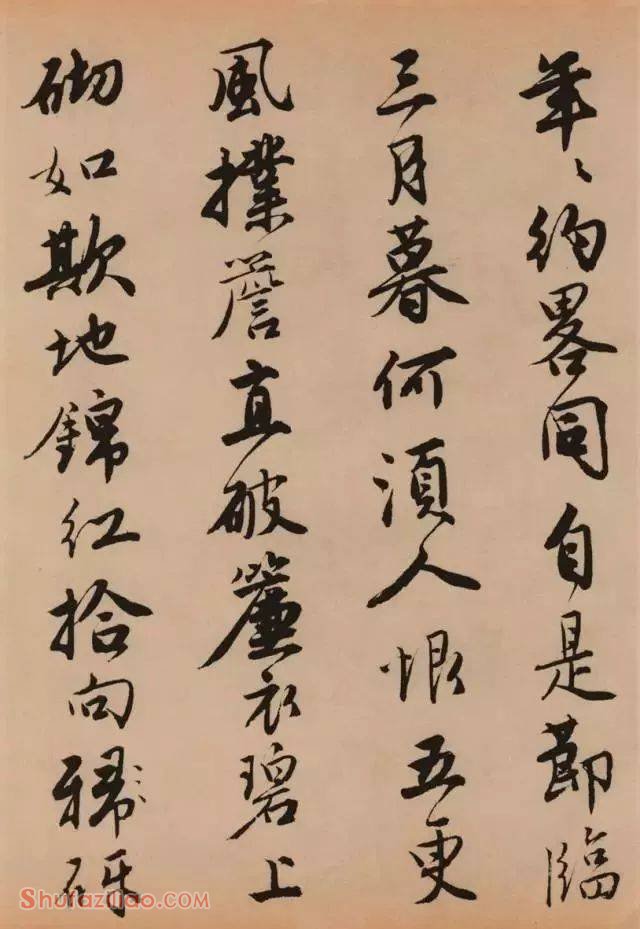 年〻約畧同自是節臨
三月暮何須人恨五更
風撲簷直破簾衣碧上
砌如欺地錦紅拾向砑
Shufaziliao.com